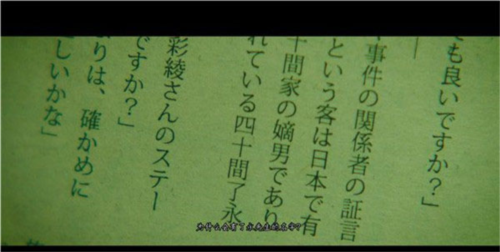 も良いですか？」
事件の関係者の証言
という客は日本で有
十間家の嫡男であり
れている四十間了永
彩綾さんのステー
ですか？」
りは、確かめに
しいかな」
为什么会有了永先生的名字?